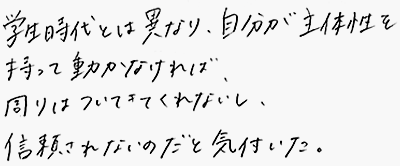 学生時代とは異なり、自分が主体性を
持って動かなければ、
周りはついてきてくれないし、
信頼されないのだと気付いた。